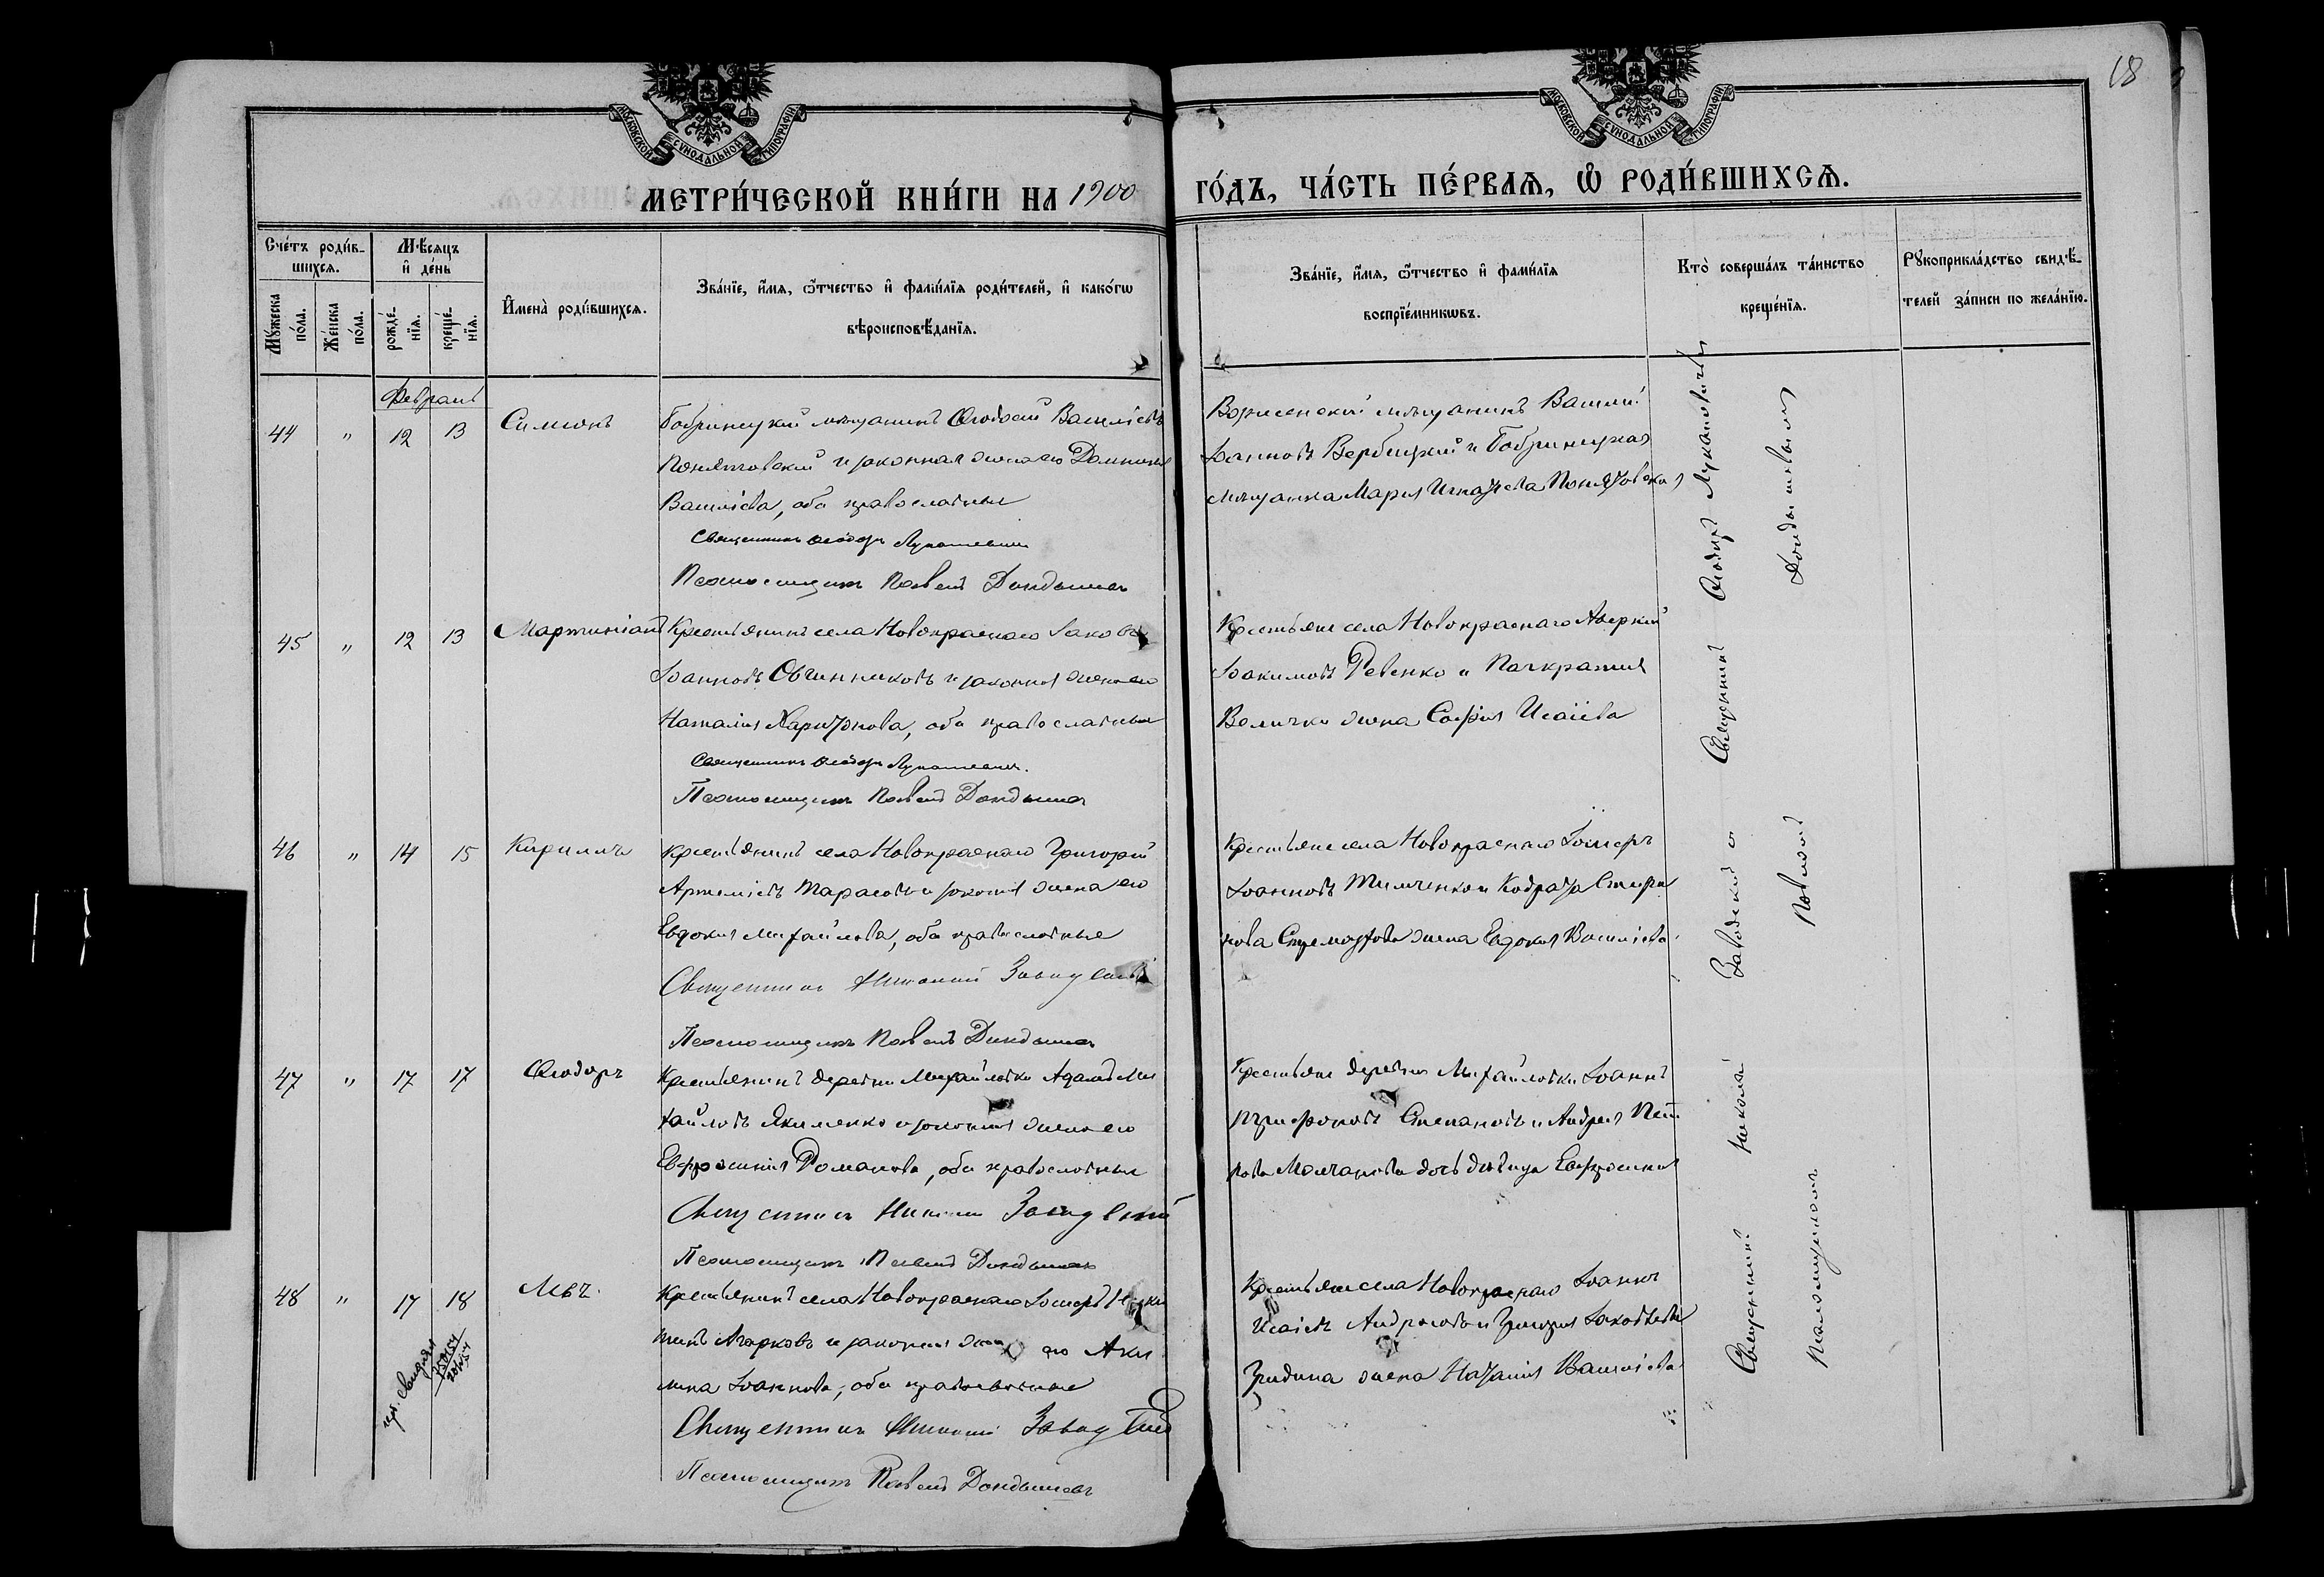 18
МОСКОВСКОЙ СѴНОДАЛЬНОЙ ТИПОГРАФІИ
МОСКОВСКОЙ СѴНОДАЛЬНОЙ ТИПОГРАФІИ
МЕТРИ́ЧЕСКОЙ КНИ́ГИ НА 1900
ГО́ДЪ, ЧА́СТЬ ПЕ́РВАѦ, Ѽ РОДИ́ВШИХСѦ.
Сче́тъ роди́в-
шихсѧ.
Мꙋ́жеска по́ла.
Же́нска по́ла.
Мѣ́сѧцъ
и҆ де́нь
рожде́-
нїѧ.
креще́-
нїѧ.
И҆мена̀ роди́вшихсѧ.
Зва́нїе, и҆́мѧ, ѻ҆́тчество и҆ фами́лїѧ роди́телей, и҆ како́гѡ
вѣроисповѣ́данїѧ.
Зва́нїе, и҆́мѧ, ѻ҆́тчество и҆ фами́лїѧ
воспрїе́мникѡвъ.
Кто̀ соверша́лъ та́инство
креще́нїѧ.
Рꙋкоприкла́дство свидѣ́-
телей за́писи по жела́нїю.
Февраль
44 " 12 13 Симеонъ
Бобринецкій мѣщанинъ Ѳеодосій Василіевъ
Понятовскій и законная жена его Домникія
Василіева, оба православные
Священникъ Ѳеодоръ Лукашевичъ
Псаломщикъ Павелъ Дондышевъ
мѣщанинъ Василій
Іоанновъ Вербицкій и Бобринецкая
мѣщанка Марія Игнатьева Понятовская
45 " 12 13 Мартиніанъ
Крестьянинъ села Новокраснаго Іаковъ
Іоанновъ Овчинниковъ и законная жена его
Наталія Харитонова, оба православные
Священникъ Ѳеодоръ Лукашевичъ.
Псаломщикъ Павелъ Дондышевъ
Крестьяне села Новокраснаго Аверкій
Іоакимовъ Ревенко и Панкратія
Величко жена Софія Исаіева
46 " 14 15 Кириллъ
Крестьянинъ села Новокраснаго Григорій
Артеміевъ Тарасовъ и законная жена его
Евдокія Михайлова, оба православные
Священникъ Николай Заводскій
Псаломщикъ Павелъ Дондышевъ
Крестьяне села Новокраснаго Іосифъ
Іоанновъ Тимченко и
жена Евдокія Василіева
47 " 17 17 Ѳеодоръ
Крестьянинъ деревни Михайловки Адамъ Ми
хайловъ Якименко и законная жена его
Евфросинія Романова, оба православные
Священникъ Николай Заводскій
Псаломщикъ Павелъ Дондышевъ
Крестьяне деревни Михайловки Іоаннъ
Трифоновъ Степановъ и Андрея Пет
рова Молчанова дочь дѣвица Евфросинія
48 " 17 18 Левъ
Крестьянинъ села Новокраснаго Іосифъ Ники
тинъ Агарковъ и законная жена его Аки
лина Іоаннова, оба православные
Священникъ Николай Заводскій
Псаломщикъ Павелъ Дондышевъ
Крестьяне села Новокраснаго Іоаннъ
Исаіевъ Андросовъ и Григорія Іаковлева
Гридина жена Наталія Василіева
Священникъ Николай Заводскій и Священникъ Ѳеодоръ Лукашевичъ
Псаломщикомъ Павломъ Дондышевымъ